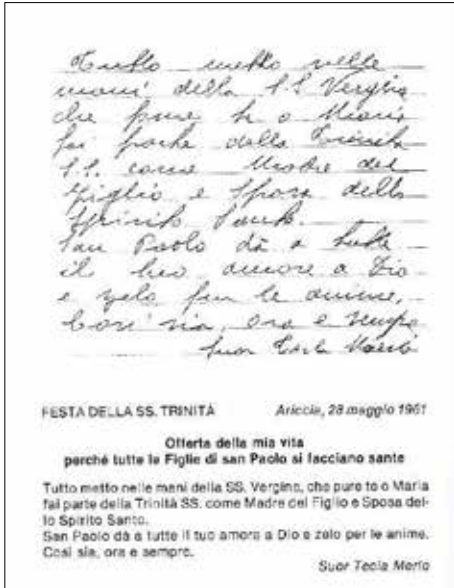 Tutto metto nelle
mani della SS Vergine
che pure tu o Maria
fai parte della Trinità
SS. come Madre del
Figlio e Sposa dello
Spirito Santo.
San Paolo dà a tutte
il tuo amore a Dio
e zelo per le anime,
Così sia, ora e sempre
Suor Tecla Merlo
FESTA DELLA SS. TRINITÀ Ariccia, 28 maggio 1961
Offerta della mia vita
perché tutte le Figlie di san Paolo si facciano sante
Tutto metto nelle mani della SS. Vergine, che pure te o Maria
fai parte della Trinità SS. come Madre del Figlio e Sposa del-
lo Spirito Santo.
San Paolo dà a tutte il tuo amore a Dio e zelo per le anime.
Così sia, ora e sempre.
Suor Tecla Merlo